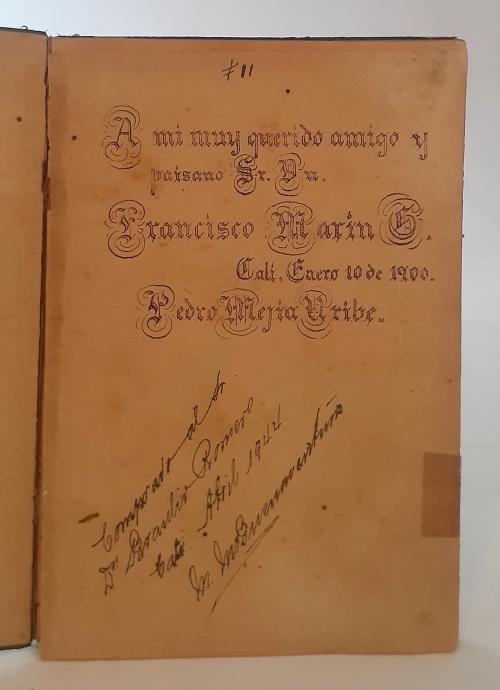 #11
A mi muy querido amigo y
paisano Sr. Dn.
Francisco Marin G.
Cali, Enero 10 de 1900.
Pedro Mejia Uribe.
Comprado al Sr
Dn Romero
Cali Abril 1944
M.